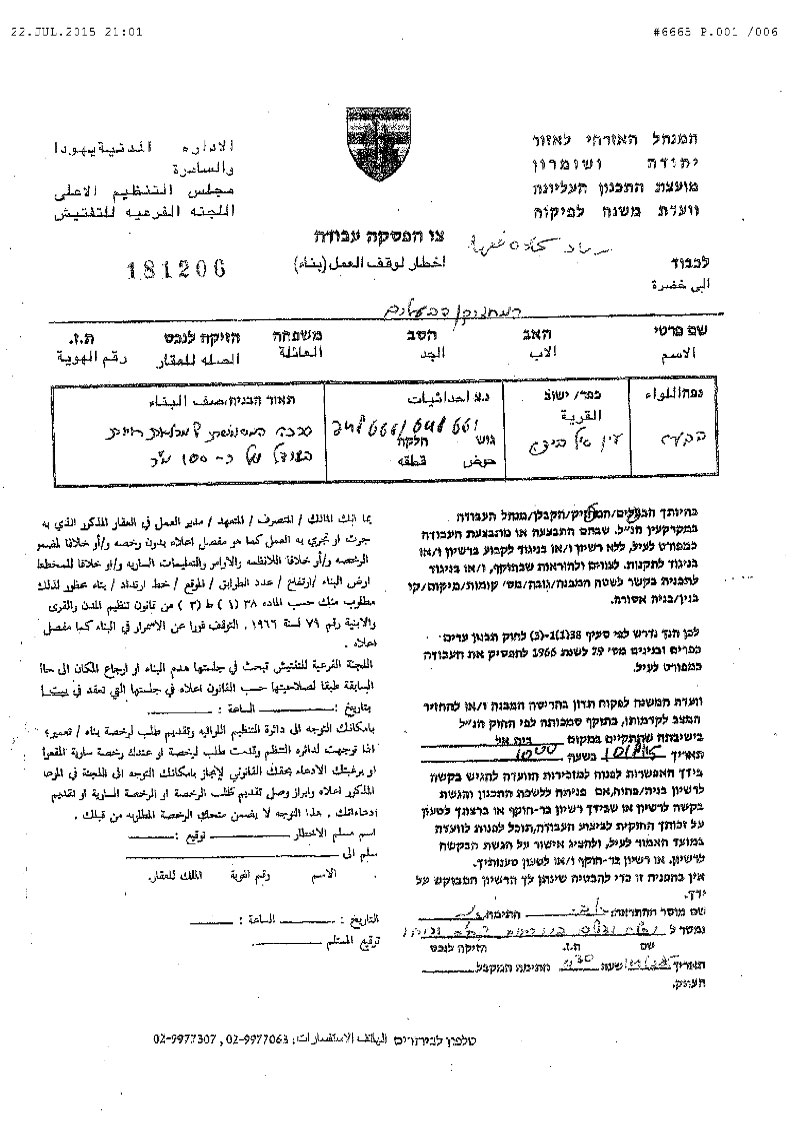 22.JUL.2015 21:01
#6665 P.001 /006
המנהל האזרחי לאזור
יהודה ושומרון
מועצת התכנון העליונה
וועדת משנה לפיקוח
الاداره المدنية يهودا
والسامرة
مجلس التنظيم الاعلى
اللجنه الفرعيه للتفتيش
צו הפסקת עבודה
اخطار لوقف العمل (بناء)
181206
לכבוד
الى حضرة
המחזיק/הבעלים
שם פרטי האב הסב משפחה הזיקה לנכס ת.ז.
الاسم الاب الجد العائلة الصله للعقار رقم الهوية
נפה اللواء
הבקעה
כפר/ ישוב
القرية
נ.צ احداثيات
גוש חלקה
حوض قطعه
תאור הבניה/صف البناء
בגודל של כ- 150 מ"ר
בהיותך הבעלים/המחזיק/הקבלן/מנהל העבודה
במקרקעין הנ"ל, שבהם התבצעה או מתבצעת העבודה
כמפורט לעיל, ללא רשיון ו/או בניגוד לקבוע ברשיון ו/או
בניגוד לתקנות, לצווים ולהוראות שבתוקף, ו/או בניגוד
לתכנית בקשר לשטח המבנה/גובה/מס' קומות/מיקום/קו
בנין/בניה אסורה.
לכן הנך נדרש לפי סעיף 38(1)-(3) לחוק תכנון ערים
כפרים ובנינים מס' 79 לשנת 1966 להפסיק את העבודה
כמפורט לעיל.
וועדת המשנה לפקוח תדון בהריסת המבנה ו/או להחזיר
המצב לקדמותו, בתוקף סמכותה לפי החוק הנ"ל
בישיבתה שתתקיים במקום בית אל
תאריך בשעה 10:00
בידך האפשרות לפנות למזכירות הועדה להגיש בקשה
לרשיון בניה/פתוח, אם פניתה ללשכת התכנון והגשת
בקשה לרשיון או שבידך רשיון בר-תוקף או ברצונך לטעון
על זכותך החוקית לביצוע העבודה, תוכל לפנות לוועדה
במועד האמור לעיל, ולהציג אישור על הגשת הבקשה
לרשיון, או רשיון בר-תוקף ו/או לטעון טענותיך.
אין בהפניה זו כדי להבטיח שינתן לך הרשיון המבוקש על
ידך.
שם מוסר ההתראה: חתימה
נמסר ל
שם ת.ז. הזיקה לנכס
תאריך שעה חתימת המקבל
העתק.
بما انك المالك / المتصرف / المتعهد / مدير العمل في العقار المذكور الذي به
جرت او تجري به العمل كما هو مفصل اعلاه بدون رخصه و/أو خلافا لمضمون
الرخصه و/أو خلافا للانظمه والاوامر والتعليمات الساريه و/او خلافا للمخطط
ارض البناء /ارتفاع / عدد الطوابق / الموقع / خط ارتداد / بناء محظور لذلك
مطلوب منك حسب الماده ٣٨ (١) ط (٣) من قانون تنظيم المدن والقرى
والابنية رقم ٧٩ لسنة ١٩٦٦ ، التوقف فورا عن الاستمرار في البناء كما مفصل
اعلاه .
اللجنة الفرعية للتفتيش تبحث في جلستها هدم البناء او ارجاع المكان الى حالته
السابقة طبقا لصلاحيتها حسب القانون اعلاه في جلستها التي تعقد في
بتاريخ : الساعة :
بامكانك التوجه الى دائرة التنظيم اللوائيه وتقديم طلب لرخصة بناء / تعمير؛
اذا توجهت لدائره التنظم وقدمت طلب لرخصة او عندك رخصة سارية المفعول
او برغبتك الادعاء بحقك القانوني لإنجاز بامكانك التوجه الى اللجنة في الموعد
المذكور اعلاه وابراز وصل تقديم طلب الرخصة او الرخصة السارية او تقديم
ادعاءاتك . هذا التوجه لا يضمن منحك الرخصة المطلوبه من قبلك .
اسم مسلم الاخطار توقيع :
سلم الى
الاسم رقم الهوية المالك للعقار.
التاريخ : الساعة :
توقيع المستلم
טלפון לבירורים الهاتف الاستفسارات: 02-9977063, 02-9977307